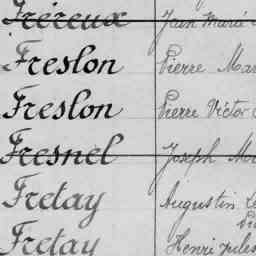 Fréreux Jean Marie
Freslon Pierre Mar
Freslon Pierre Victor
Fresnel Joseph
Fretay Augustin
Fretay Henri Jules